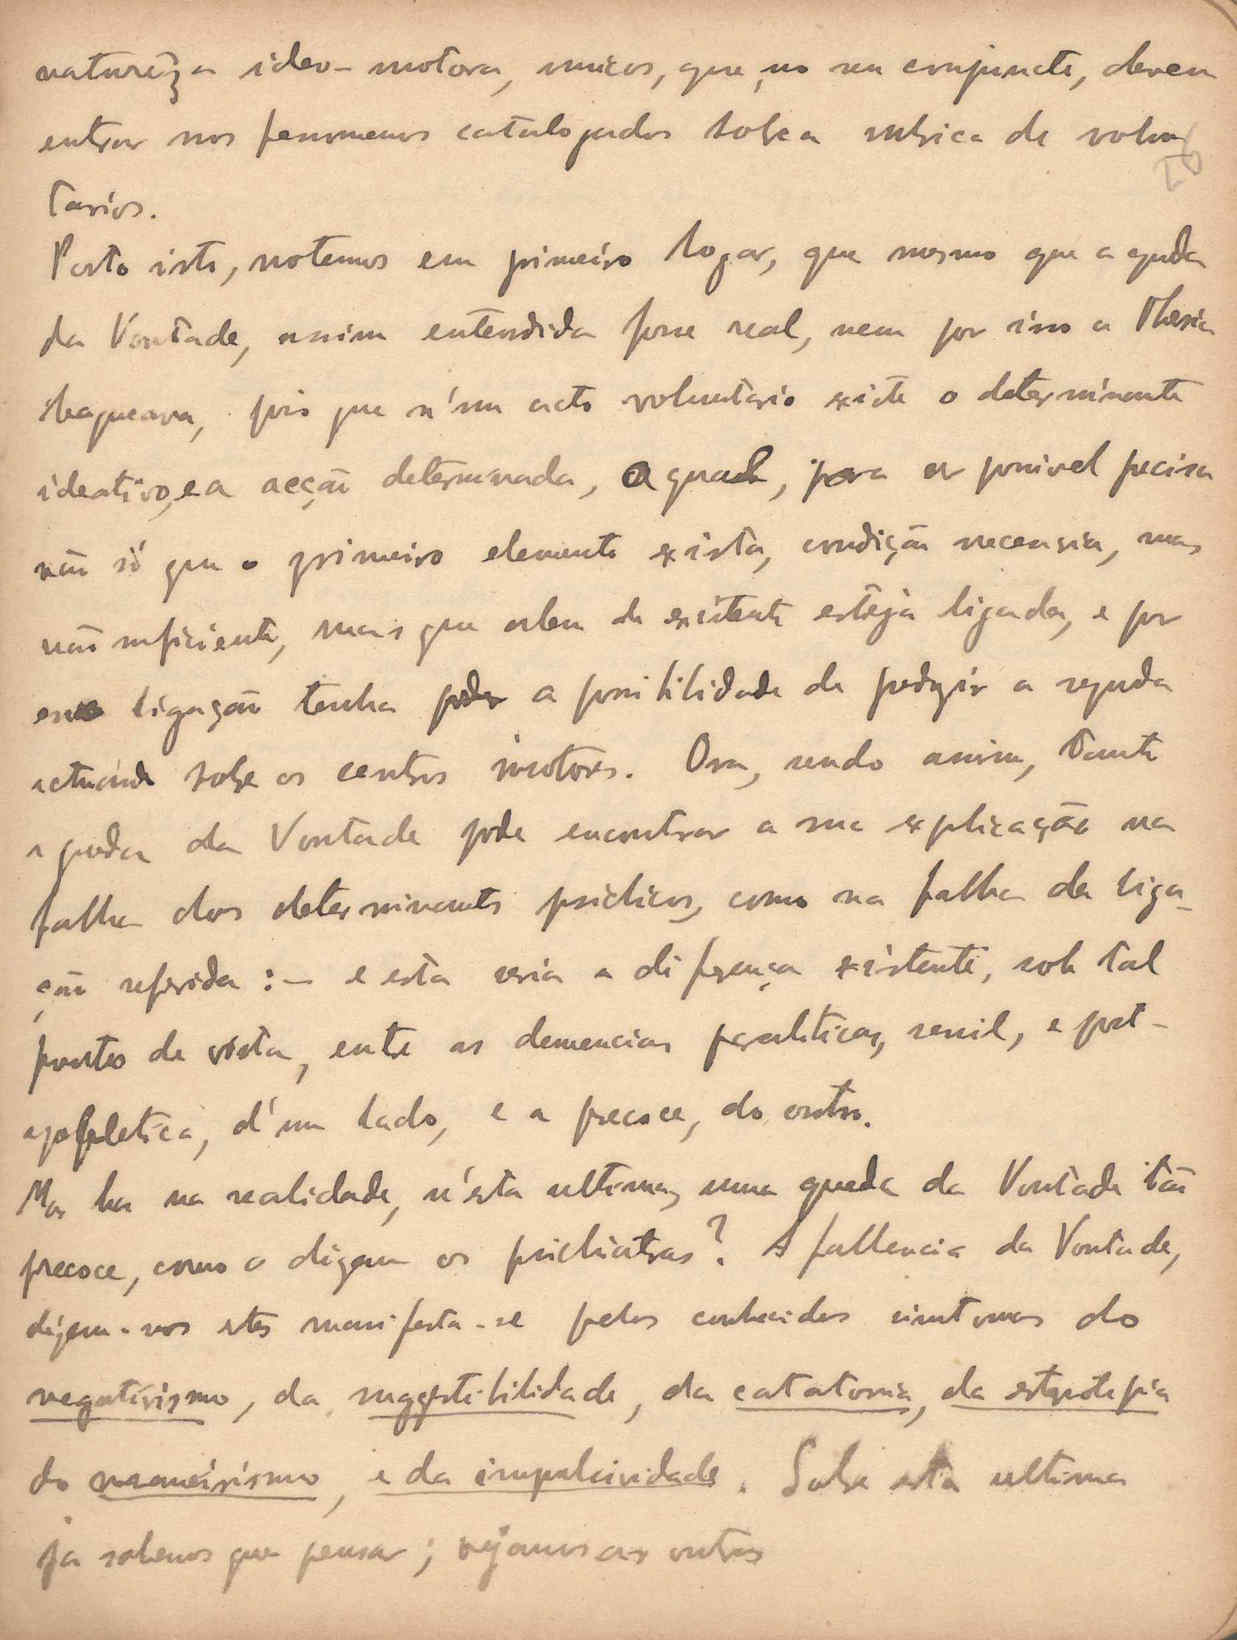 natureza ideo-motora, unicos, que, no seu conjuncto, devem
entrar nos fenomenos catalogados sobre a rubrica de volun
tarios.
Posto isto, notemos em primeiro logar, que mesmo que a queda
da Vontade, assim entendida fosse real, nem por isso a Thesia
baqueava, pois que n'um acto voluntário existe o determinante
ideativo, e a acção determinada, a qual, para ser possivel precisa
não só que o primeiro elemento exista, condição necessaria, mas
não sufficiente, mas que alem de existente esteja ligada, e por
essa ligação tenha a possibilidade de produzir a segunda
actuando sobre os centros motores. Ora, sendo assim, tanto
a queda da Vontade pode encontrar a sua explicação na
falha dos determinantes psichicos, como na falha da liga-
ção referida :— e esta seria a diferença existente, sob tal
ponto de vista, entre as demencias paraliticas, senil, e post-
apopletica, d'um lado, e a precoce, do outro.
Mas ha na realidade, n'esta ultima, uma queda da Vontade tão
precoce, como o dizem os psichiatras? A fallencia da Vontade,
dizem-nos estes manifesta-se pelos conhecidos sintomas do
negativismo, da suggestibilidade, da catatonia, da esteriotipia
do maneirismo, e da impulsividade. Sobre esta ultima
ja sabemos que pensar; vejamos as outras